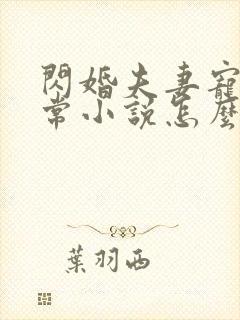 閃婚夫妻寵
常小說怎麼
葉羽西